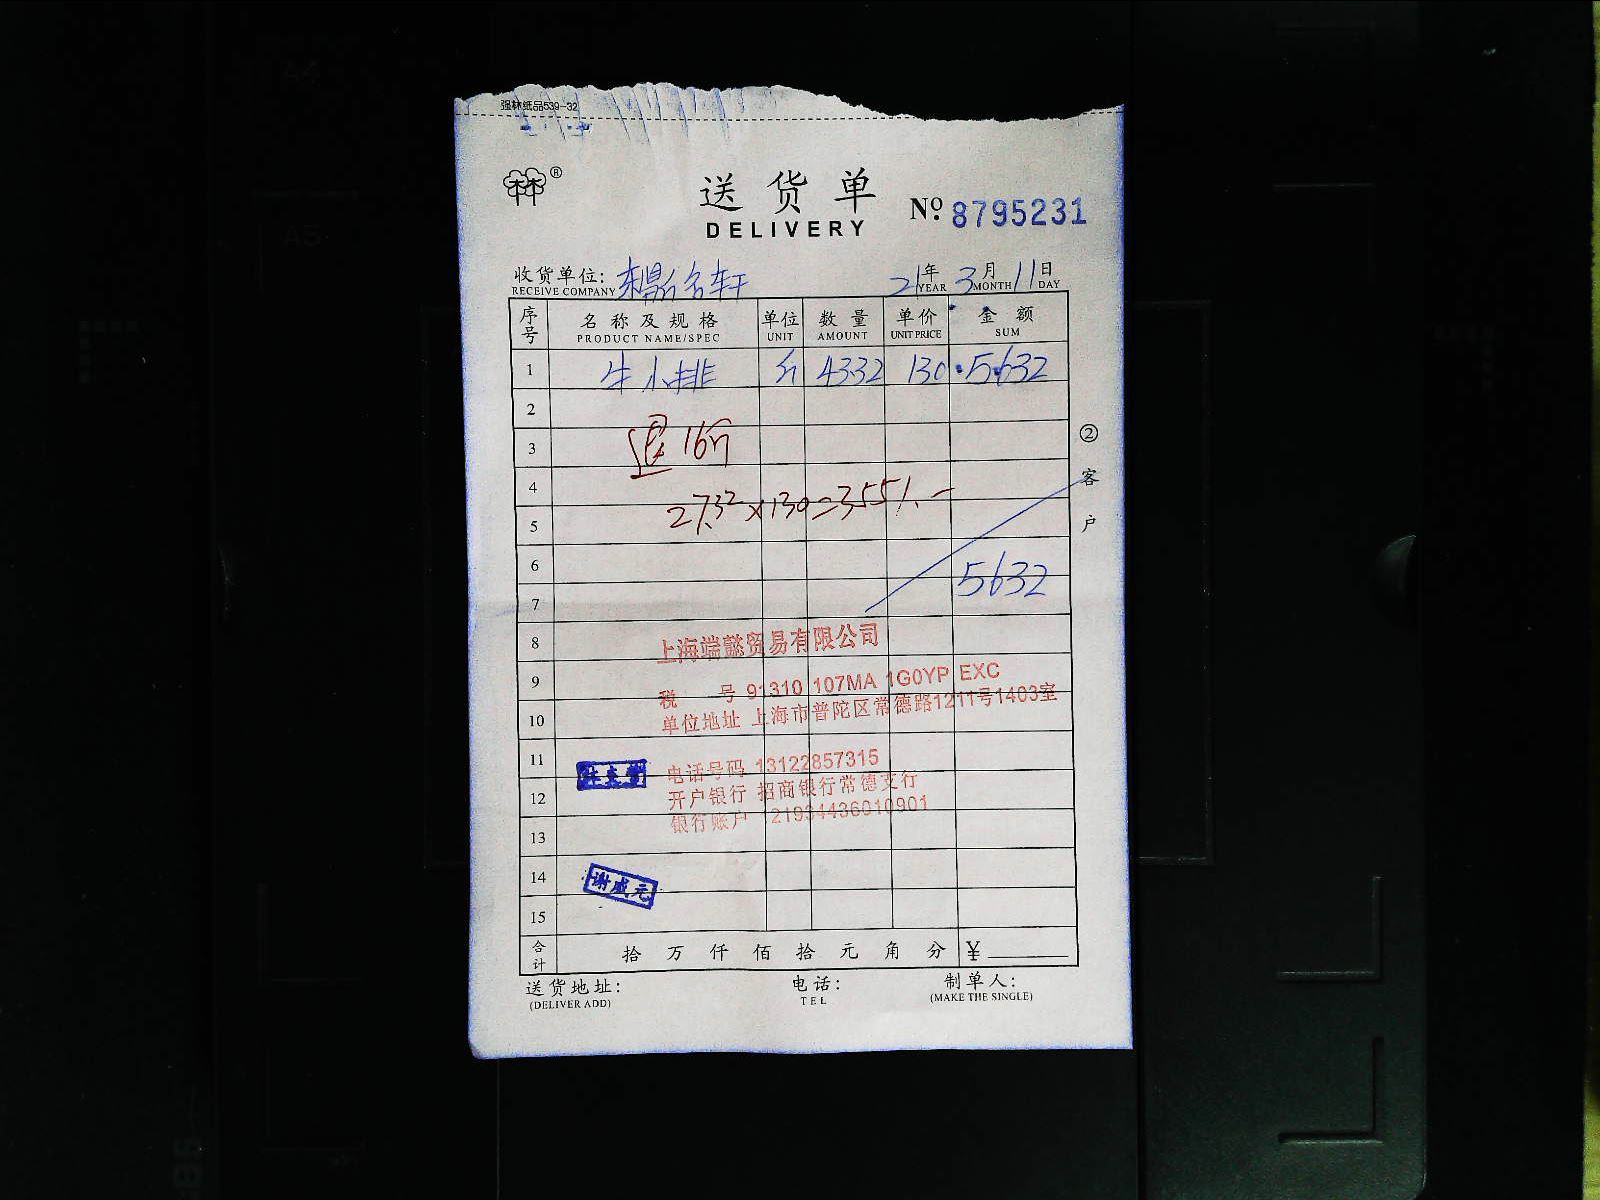 强林纸品539-32
林®
送货单
DELIVERY
№ 8795231
收货单位: 东鼎名轩 21年 3月 11日
RECEIVE COMPANY YEAR MONTH DAY
序号 名称及规格 单位 数量 单价 金额
PRODUCT NAME/SPEC UNIT AMOUNT UNIT PRICE SUM
1 牛小排 斤 4332 130 5632
2
3 退 16斤
4
5 27.32×130=3551.-
6 5632
7
8 上海端懿贸易有限公司
9 税 号 91310 107MA 1G0YP EXC
10 单位地址 上海市普陀区常德路1211号1403室
11 电话号码 13122857315
12 开户银行 招商银行常德支行
13 银行账户 121934436010901
14 谢盛元
15
合计 拾 万 仟 佰 拾 元 角 分 ¥
送货地址: 电话: 制单人:
(DELIVER ADD) TEL (MAKE THE SINGLE)
②客户
A4
A5
B5